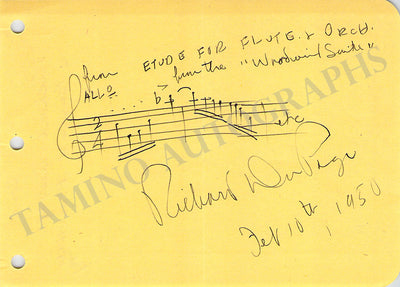 from ETUDE FOR FLUTE & ORCH.
ALLO from the "Woodwind Suite"
2
4
etc
Richard DuPage
Feb 10th, 1950
TAMINO AUTOGRAPHS